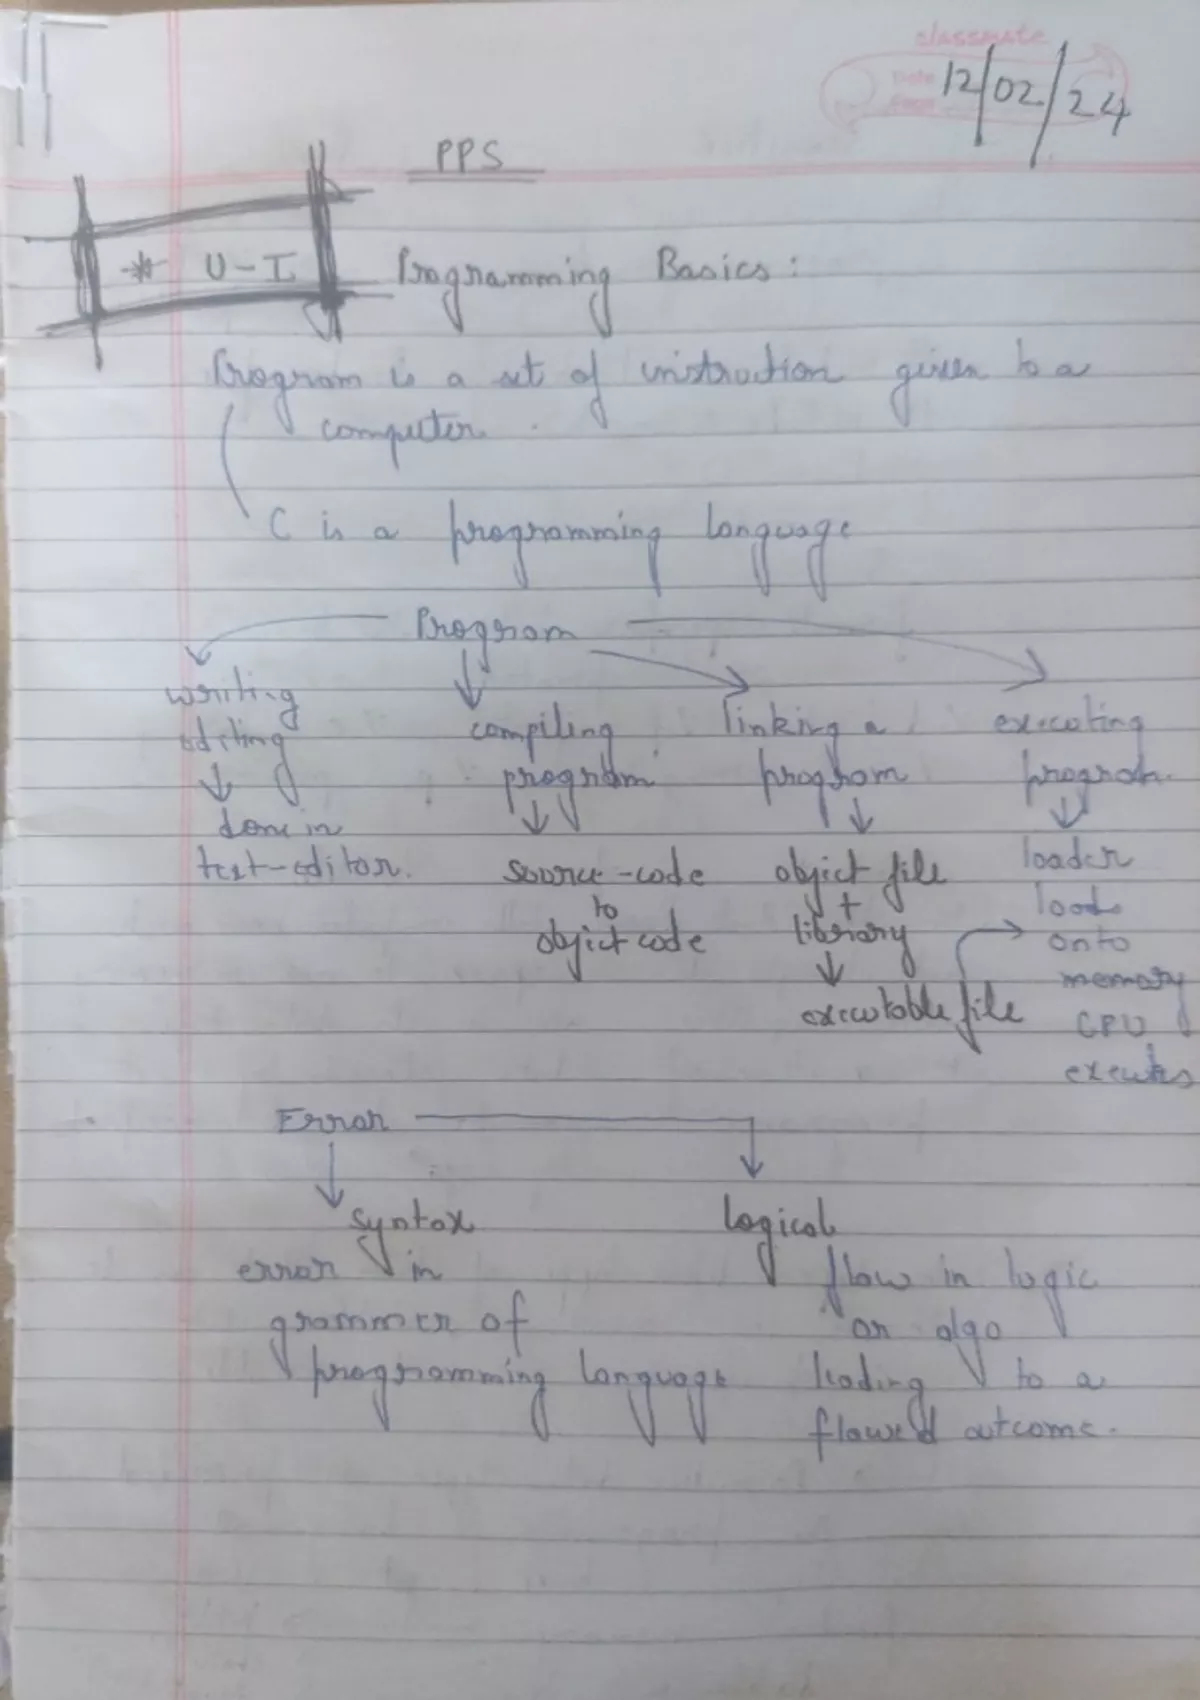 classmate
Date
Page
12/02/24
PPS
* U-I Programming Basics :
Program is a set of instruction given to a
computer.
C is a programming language
Program
writing
editing
done in
text-editor.
compiling
program
source-code
to
object code
linking a
program
object file
+
library
executable file
executing
program.
loader
loads
onto
memory
CPU
executes
Error
syntax
error in
grammer of
programming language
logical
flaw in logic
or algo
leading to a
flawed outcome.